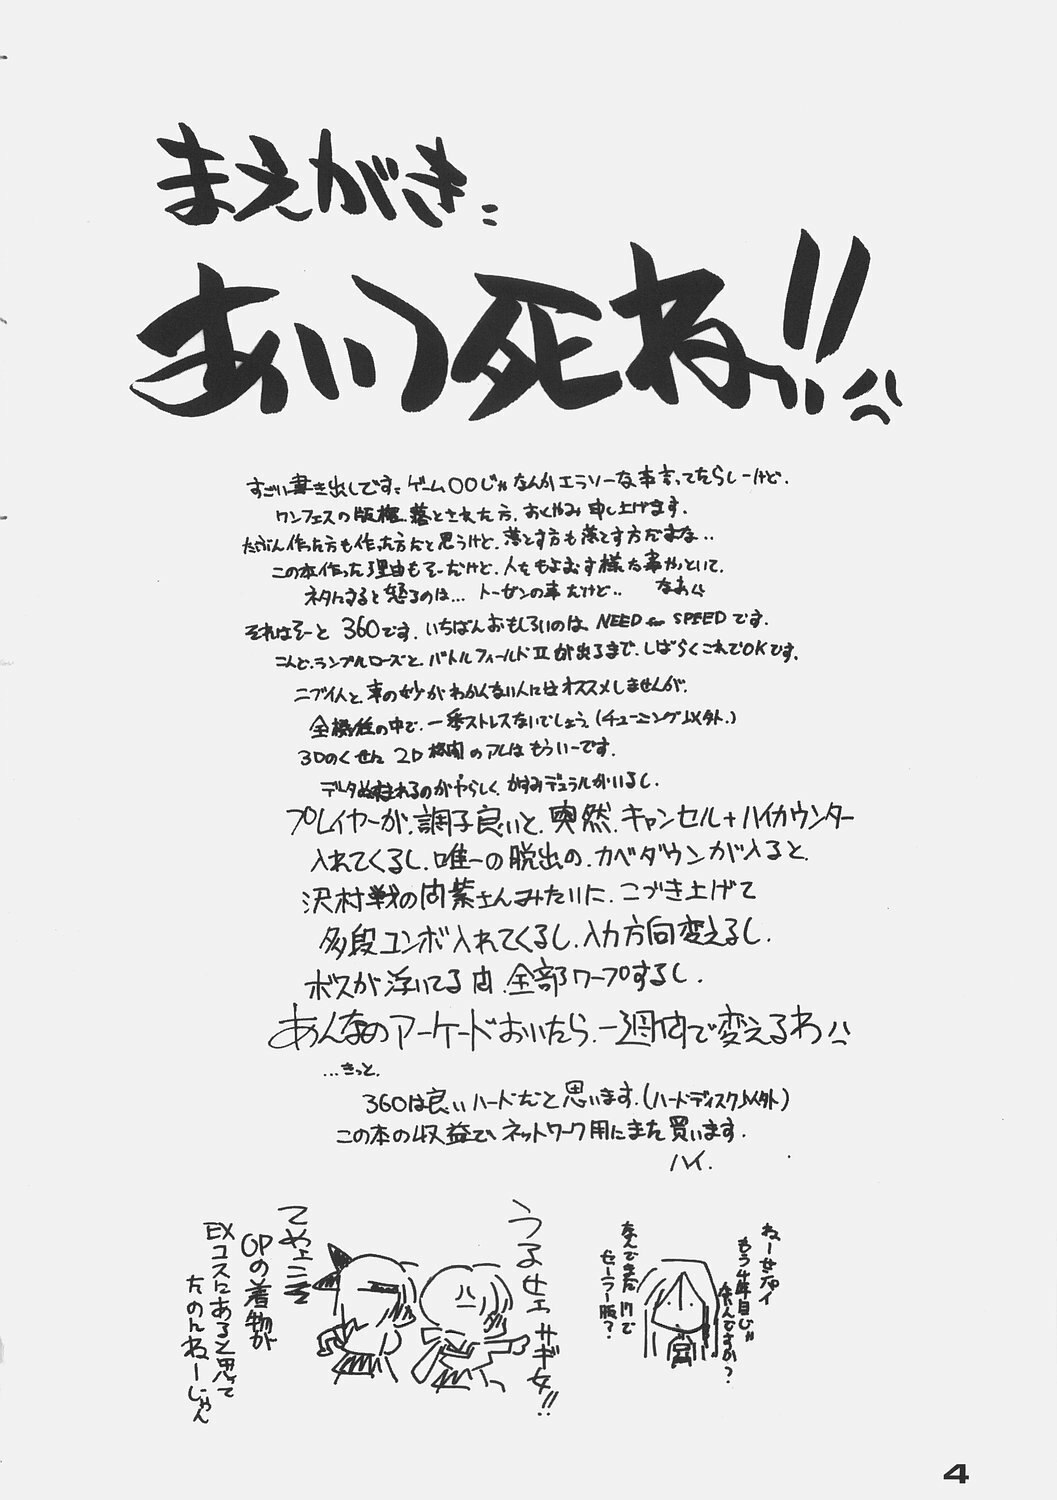 まえがき、
あいつ死ね!!
すごい書き出しです、ゲーム〇〇じゃなんかエラソーな事言ってたらしーけど、
ワンフェスの版権、落とされた方、おくやみ申し上げます。
たぶん作った方も作った方だと思うけど、落とす方も落とす方だよな..
この本作った理由もそーだけど、人をもよおす様な事やっといて、
ネタにすると怒るのは... トーゼンの事だけど.. なあ
それはそーと 360です。いちばんおもしろいのは、NEED for SPEED です。
こんど、ランブルローズと、バトルフィールドⅡが出るまで、しばらくこれでOKです。
ニブイ人と、車の妙がわかんない人にはオススメしませんが、
全機種の中で、一番ストレスないでしょう。(チューニング以外。)
3Dのくせに 2D格闘のアレはもういーです。
データぬすまれるのがやらしく、かすみデュラルがいるし、
プレイヤーが、調子良いと、突然、キャンセル+ハイカウンター
入れてくるし、唯一の脱出の、カベダウンが入ると、
沢村戦の向紫さんみたいに、こづき上げて
多段コンボ入れてくるし、入力方向変えるし、
ボスが浮いてる間、全部ワープするし、
あんなのアーケードおいたら、一週間で変えるわ
...きっと、
360は良いハードだと思います。(ハードディスク以外)
この本の収益で、ネットワーク用にまた買います。
ハイ.
ねーせんパイ
もう4年目じゃ
ないんですか?
なんでまだ17で
セーラー服?
うるせェサギ女!!
てゆェニ
OPの着物が
EXコスにあると思って
たのんねーじゃん
4